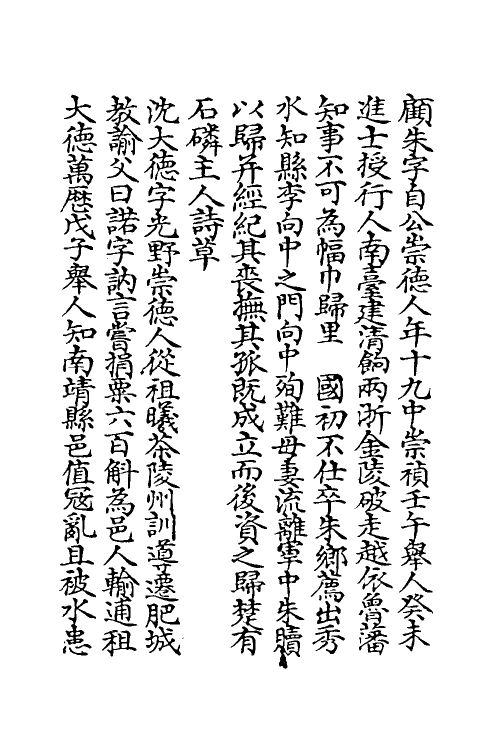 顧朱字自公崇德人年十九中崇禎壬午舉人癸未
進士授行人南臺建清餉兩浙金陵破走越依魯藩
知事不可為幅巾歸里　國初不仕卒朱鄉薦出秀
水知縣李向中之門向中殉難母妻流離軍中朱贖
以歸并經紀其喪撫其孤既成立而後資之歸楚有
石磷主人詩草
沈大德字光野崇德人從祖曦茶陵州訓導遷肥城
教諭父曰諾字訥言嘗捐粟六百斛為邑人輸逋租
大德萬歷戊子舉人知南靖縣邑值冦亂且被水患